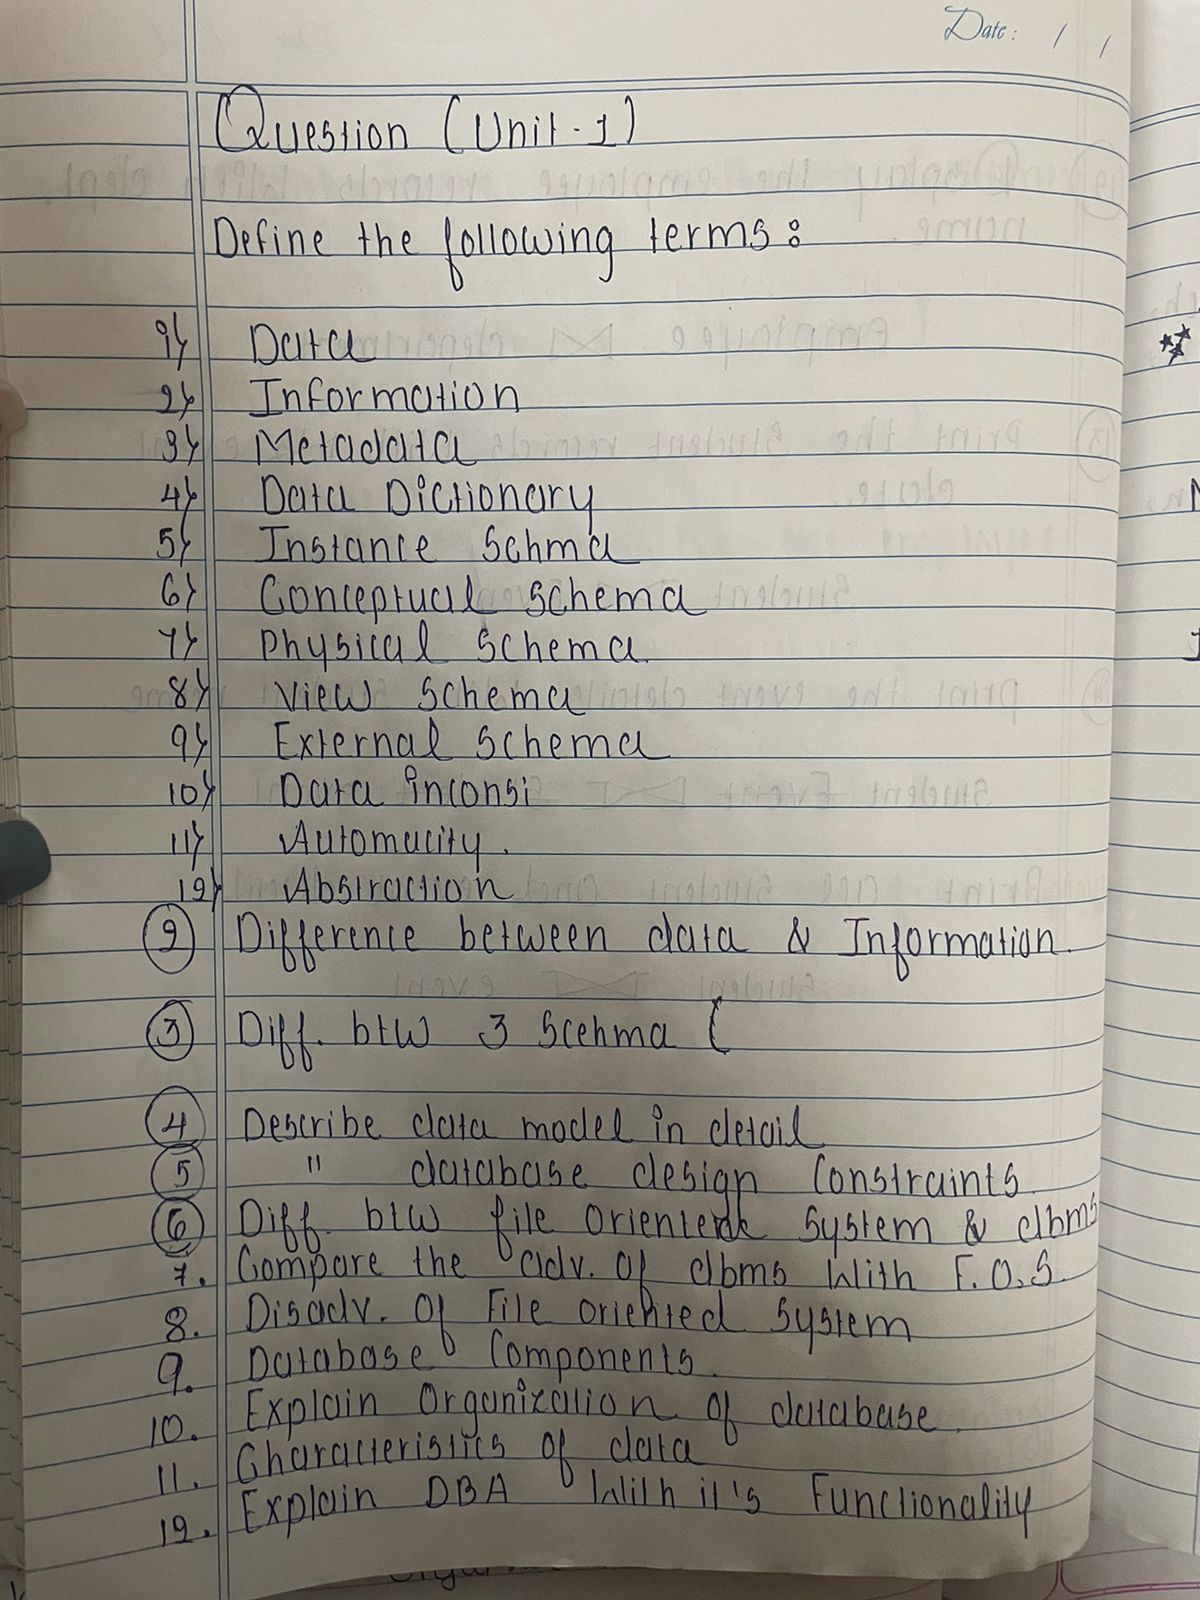 Date: / /
Question (Unit-1)
Define the following terms:
1) Data
2) Information
3) Metadata
4) Data Dictionary
5) Instance Schma
6) Conceptual Schema
7) Physical Schema
8) View Schema
9) External Schema
10) Data inconsi
11) Automacity.
12) Abstraction
2 Difference between data & Information.
3 Diff. btw 3 Scehma (
4 Describe data model in detail
5 " database design Constraints.
6 Diff. btw file oriented System & dbms
7. Compare the adv. of dbms With F.O.S.
8. Disadv. of File oriented System
9. Database Components.
10. Explain Organization of database.
11. Characteristics of data
12. Explain DBA With it's Functionality